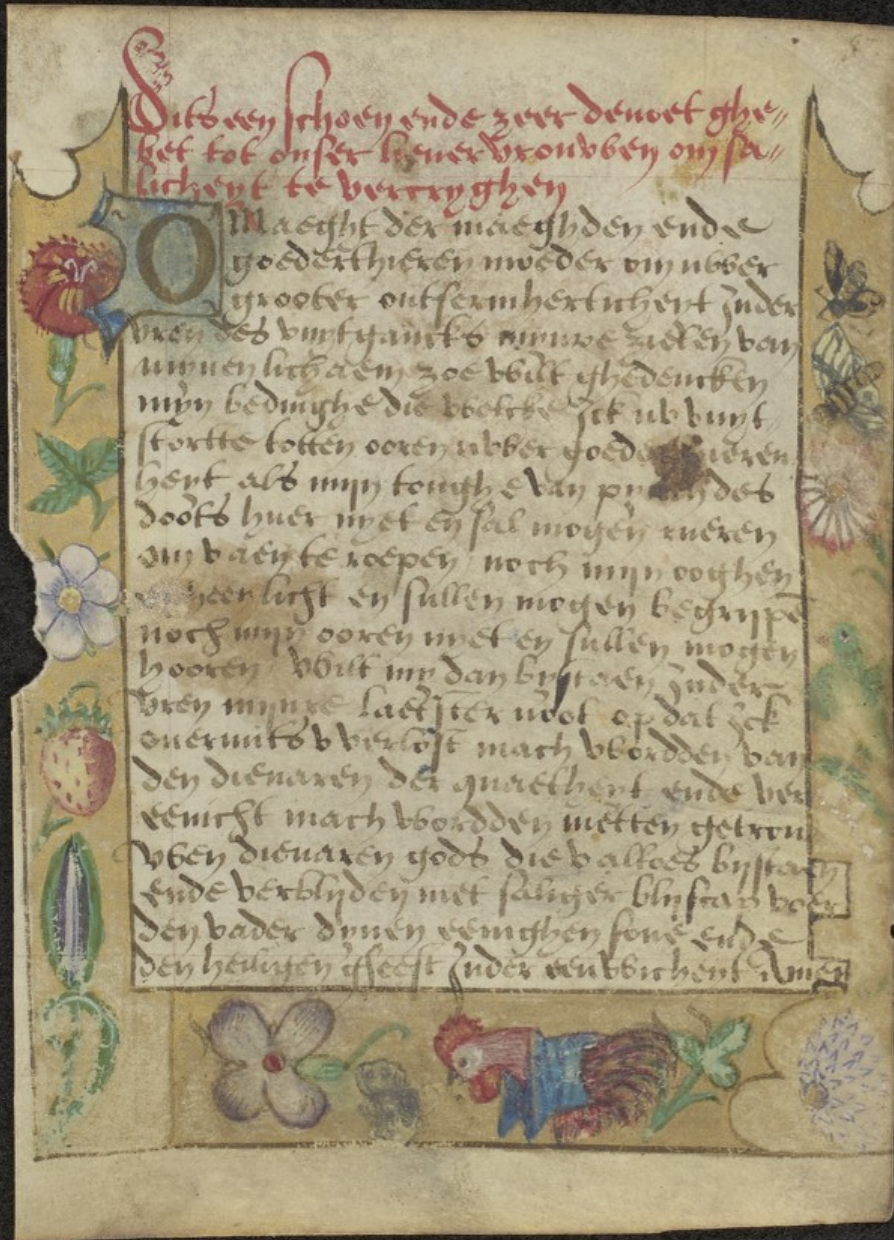 Dits een schoen ende zeer deuoet ghe〃
bet tot onser lieuer vrouwen om sa〃
licheyt te vercryghen
O Maeght der maeghden ende
goederthieren moeder om uwer
grooter ontfermherticheyt Inder
vren des vuytgancks mynre zielen van
mynen lichaem zoe wilt ghedencken
mijn bedinghe die welcke Ick uw vuyt
stortte totten ooren uwer goeder
heyt als mijn tonghe van des
doots huer nyet en sal mogen rueren
om v aen te roepen / noch mijn ooghen
licht en sullen mogen begrijpē
noch mijn ooren nyet en sullen mogen
hooren / wilt my dan bystaen Inder
vren mijnre laetster noot op dat Ick
ouermits v verlost mach wordden van
den dienaren der quaetheyt ende ver
eenicht mach wordden metten getrou
wen dienaren gods die v altoes bystaen
ende verblyden met saliger blyscap voer
den vader dynen eenighen sone ende
den heiligen gheest Inder eeuwicheyt Amen